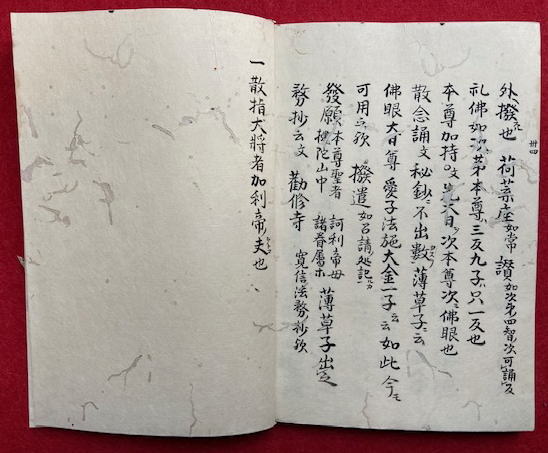 外撥也 荷葉座如常 讃如次第四智次可誦反
礼佛如次第本尊三反九子只一反也
本尊加持文 先大日次本尊次佛眼也
散念誦文 秘鈔ニ不出数 薄草子ニ云
佛眼 大日 本尊 愛子法施 大金一子云云 如此今
可用之欤 撥遣如召請処記
發願 本尊聖者 訶利帝母 檀陀山中 諸眷屬 薄草子出之
務抄云文 勸修寺 寛信法務抄欤
一散指大將者加利帝夫也
卌四